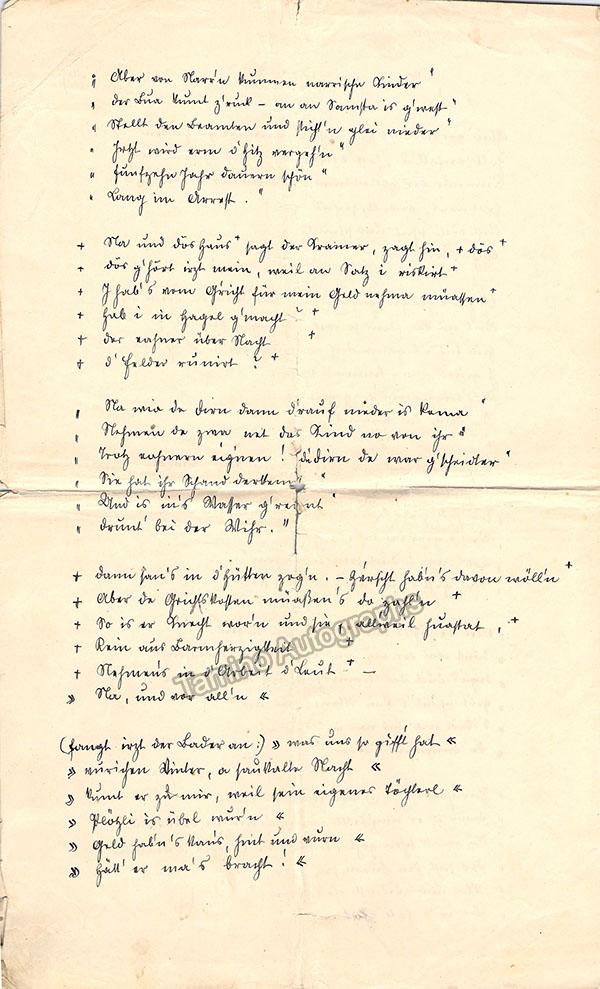 " Aber von Narr'n kummen narrische Kinder "
" der Bua kumt z'ruck – an an Samsta is g'west "
" Stellt den Beamten und sticht'n glei nieder "
" Jetzt wird erm d'Hitz vergeh'n "
" fünfzehn Jahr dauern schön "
" Lang im Arrest . "
+ Na und dös Haus + sagt der Kramer, zagt hin, + dös +
+ dös g'hört irzt mein, weil an Satz i riskirt +
+ I hab's vom Gricht für mein Geld nehma müassen +
+ Hab i in Hagel g'macht ? +
+ der eahner über Nacht +
+ d'Felder runirt ? +
" Na wia de Dirn dann d'rauf nieder is kema "
" Nehmen de zwa net das Kind no von ihr "
" Trotz eahnern eignen ! de Dirn de war g'scheidter "
" Sie hat ihr Schand derkennt "
" Und is in's Wasser g'rennt "
" drunt' bei der Wihr. "
+ dann san's in d'Hütten zog'n. – Z'erscht hab'n's davon wöll'n +
+ Aber de Grichtskosten müaßen's da zahl'n +
+ So is er Knecht wor'n und sie, allweil huastat , +
+ Rein aus Barmherzigkeit +
+ Nehmen's in d'Arbeit d'Leut + –
» Na, und vor all'n «
(fangt irzt der Bader an:) » was uns so gifft hat «
» vurichen Winter, a saukalte Nacht «
» kumt er zu mir, weil sein eigenes Töchterl «
» Plötzli is übel wur'n «
» Geld hab'n's kans, hint und vurn «
» Hätt' er ma's bracht ! «
Tamino Autographs